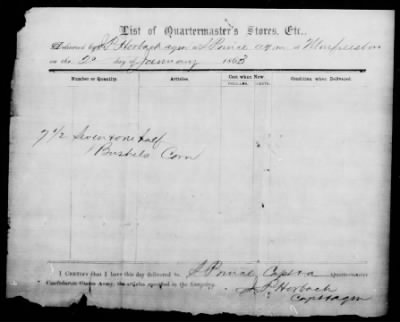 List of Quartermaster's Stores, Etc.,
Delivered by J P Horbach agm to S Prince aqm at Murfreesboro
on the 20 day of January 1863
Number or Quantity. Articles. Cost when New. Condition when Delivered.
DOLLARS. CENTS.
7 1/2 Seven & one half
Bushels Corn
I Certify that I have this day delivered to S Prince Capt & a Quartermaster
Confederate States Army, the articles specified in the foregoing.
J P Horbach
Capt & agm